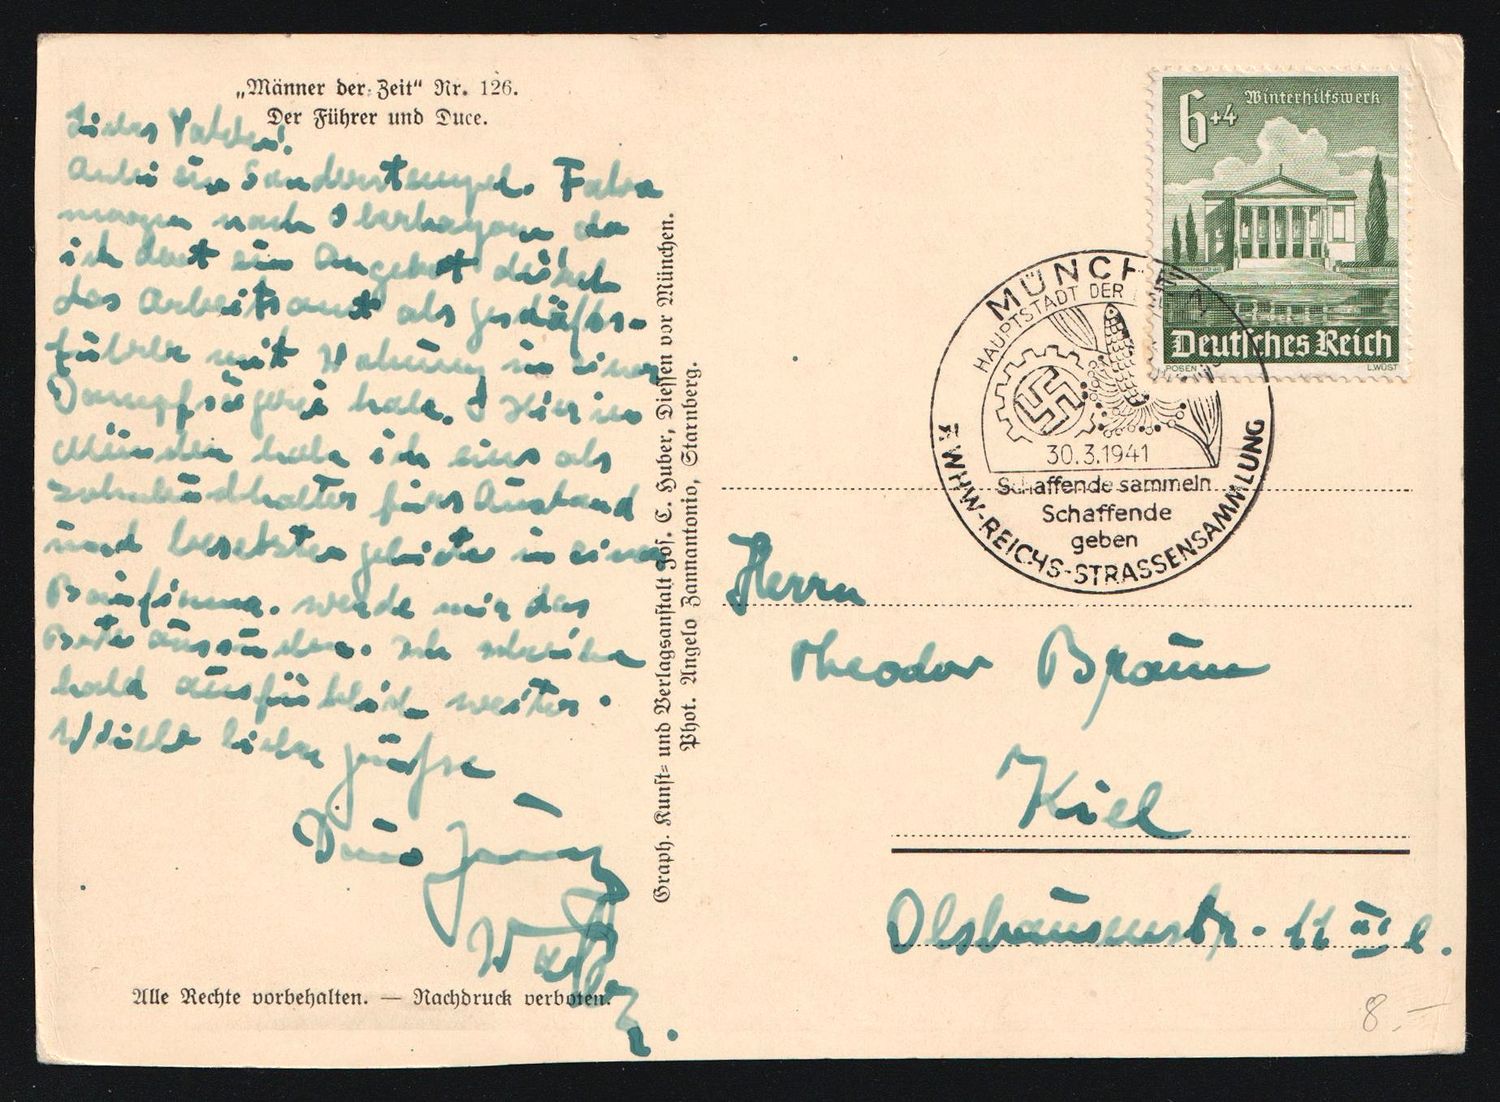 „Männer der Zeit“ Nr. 126.
Der Führer und Duce.
Anbei ein Sonderstempel. Fahre
morgen nach Oberbayern da
ich dort ein Angebot durch
das Arbeitsamt als Geschäfts-
führer mit Wohnung in einer
Dampfsägerei habe. Hier in
München habe ich eins als
fürs Ausland
und besetzten Gebiete in einer
Baufirma. werde mir das
Beste aussuchen. Ich schreibe
bald ausführlich weiter.
liebe Grüsse
Dein Junge
Graph. Kunst- und Verlagsanstalt Jos. C. Huber, Diessen vor München.
Phot. Angelo Zannantonio, Starnberg.
Alle Rechte vorbehalten. — Nachdruck verboten.
6+4 Winterhilfswerk
Deutsches Reich
POSEN L.WÜST
MÜNCH
HAUPTSTADT DER
30.3.1941
Schaffende sammeln
Schaffende
geben
WHW-REICHS-STRASSENSAMMLUNG
Herrn
Theodor Braun
Kiel
Olshausenstr. 11 III l.
8.–